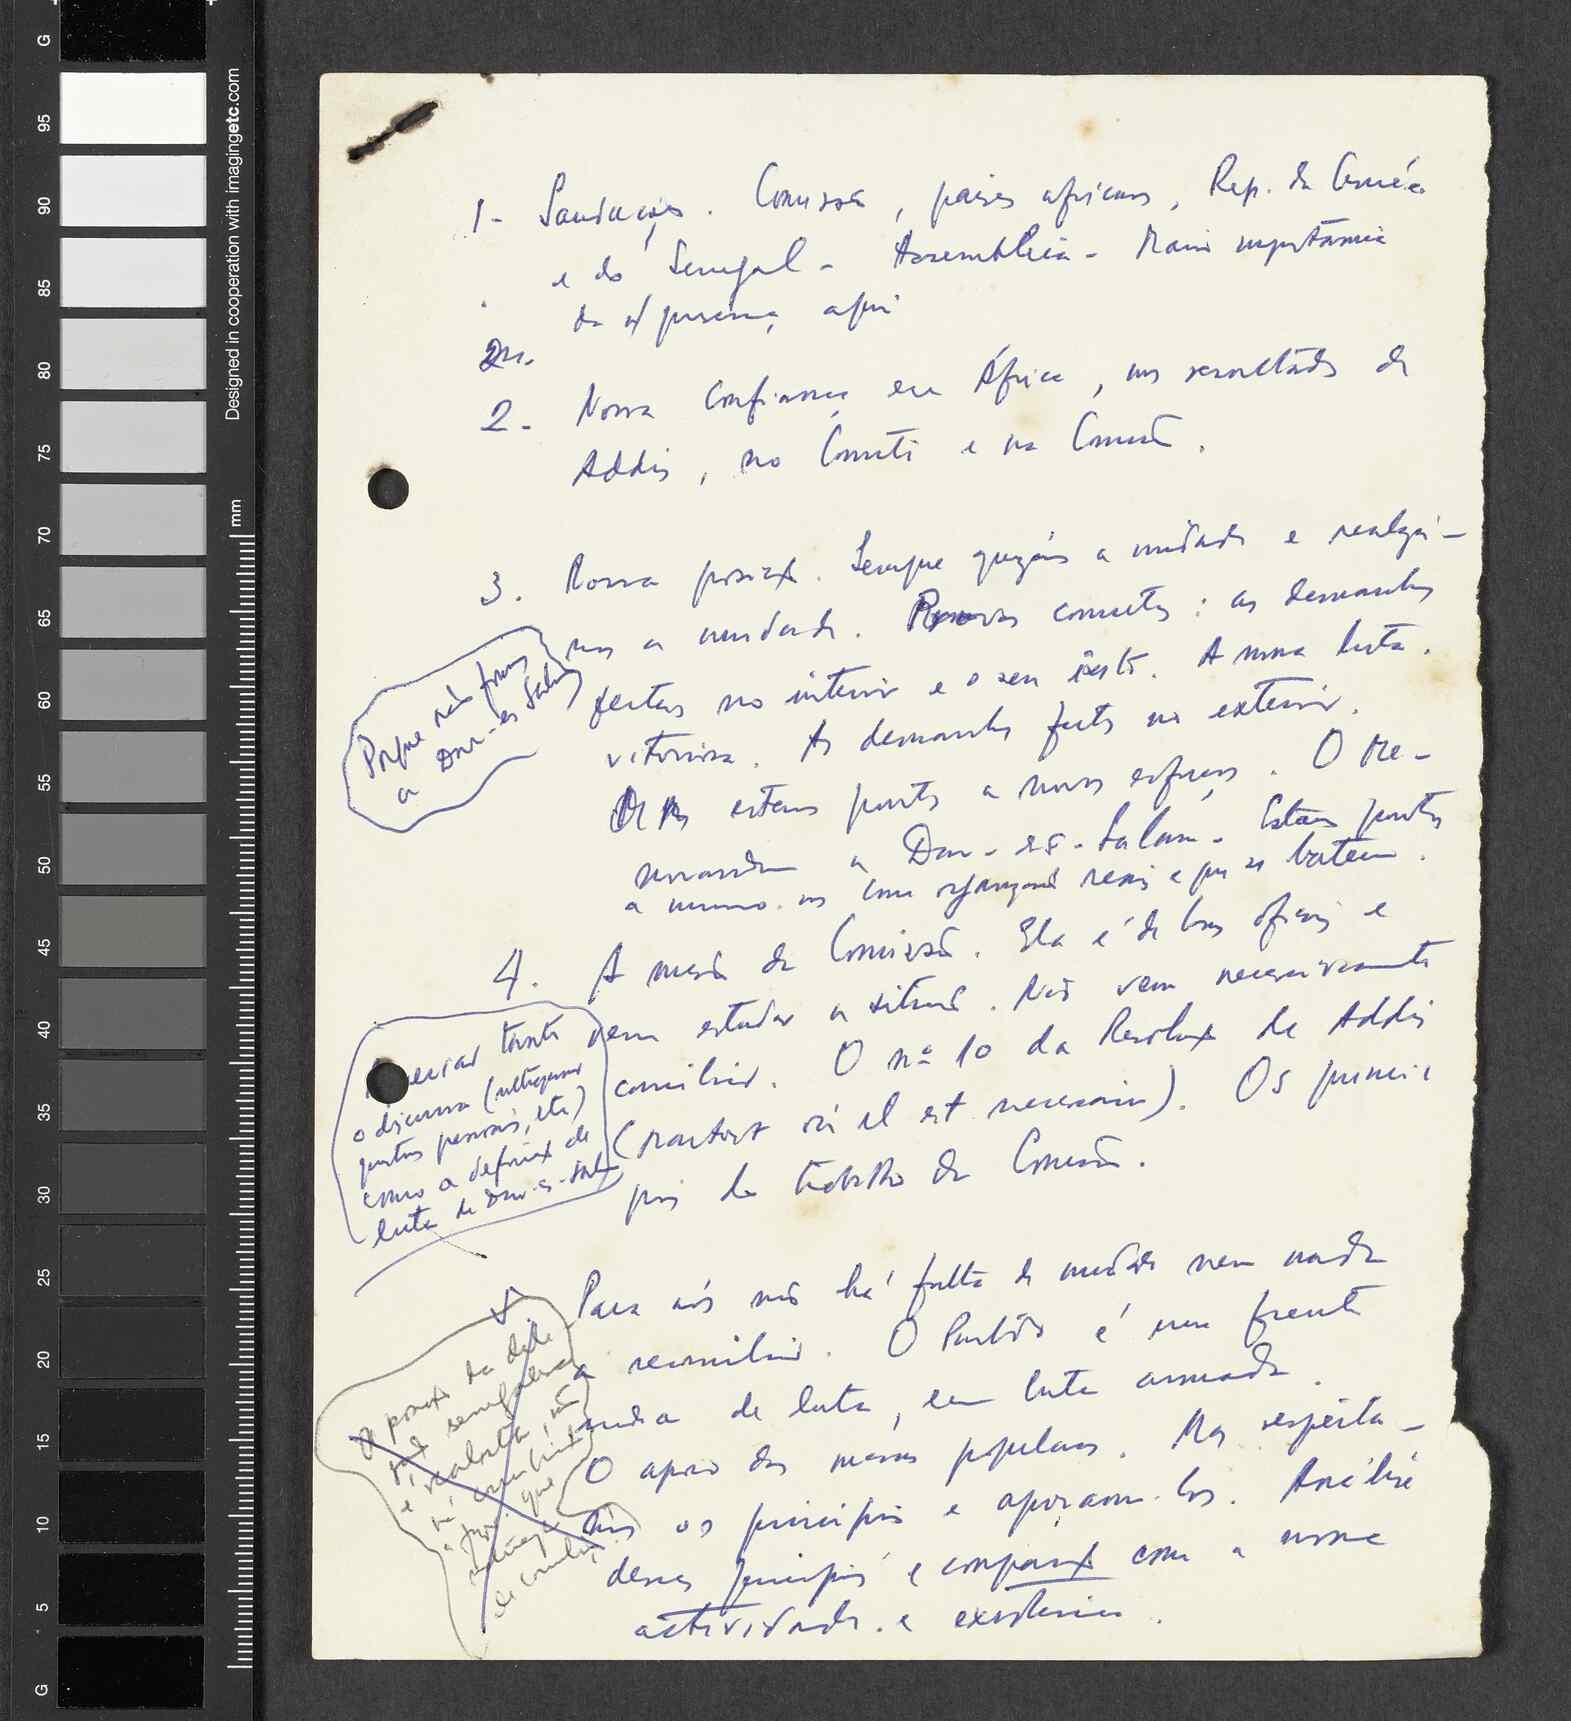 1- Saudações. Comissão, países africanos, Rep. da Guiné
e do Senegal - Assembleia - Maior importância
da n/ presença aqui
2.
2. Nossa confiança em África, nos resultados de
Addis, no Comité e na Comissão.
3. Nossa posição. Sempre a unidade e realizá-
mos a unidade. Provas concretas: as demarches
feitas no interior e o seu êxito. A nossa luta
vitoriosa. As demarches feitas no exterior.
estamos prontos a novos esforços. O Me-
morandum a Dar-es-Salam. Estamos prontos
a com organizações reais e que se batem.
Porque não fomos
a Dar-es-Salam
4. A missão da Comissão. Ela é de bons ofícios e
vem estudar a situação. Não vem necessariamente
conciliar. O nº 10 da Resolução de Addis
(partout où il est necessaire). Os princí-
pios do trabalho da Comissão.
tanto
o discurso (
pontos pessoais, etc)
como a definição de
luta de Dar-es-Sal
Para nós não há falta de unidade nem nada
a reconciliar. O Partido é uma frente
unida de luta, em luta armada.
O apoio das massas populares. Mas respeita-
mos os princípios e apoiamo-los. Análise
desses princípios e comparação com a nossa
actividade e existência.
A posição da dele-
gação senegalesa
é realista, não
há conciliação
a fazer que
de conciliação
Designed in cooperation with imagingetc.com
mm
G
95
90
85
80
75
70
65
60
55
50
45
40
35
30
25
20
15
10
5
G